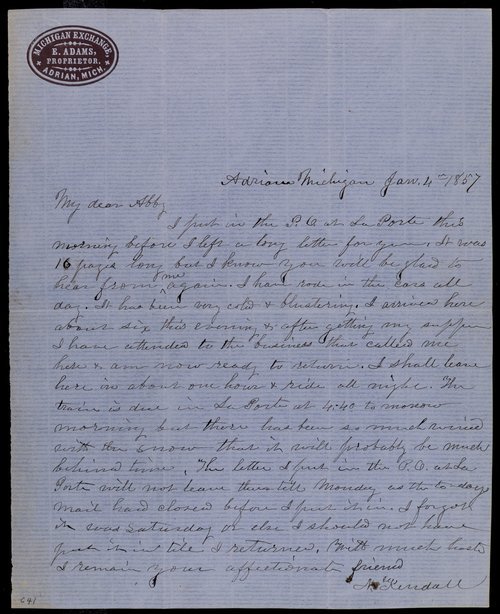 MICHIGAN EXCHANGE,
E. ADAMS,
PROPRIETOR.
ADRIAN, MICH.
Adrian Michigan Jan. 4th 1857
My dear Abby
I put in the P.O. at La Porte this
morning before I left a long letter for you. It was
16 pages long but I know you will be glad to
hear from me again. I have rode in the cars all
day. It has been very cold & blustering. I arrived here
about six this evening & after getting my supper
I have attended to the business that called me
here & am now ready to return. I shall leave
here in about one hour & ride all night. The
train is due in La Porte at 4:40 to morrow
morning but there has been so much wind
with the snow that it will probably be much
behind time. The letter I put in the P.O. at La
Porte will not leave there till Monday as the to-days
mail had closed before I put it in. I forgot
it was Saturday or else I should not have
put it in till I returned. With much haste
I remain your affectionate friend
Kendall
C41